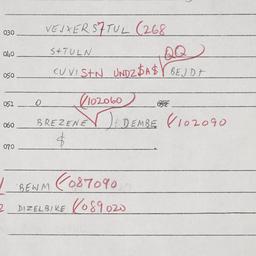 030 VEJXERS7TUL (268
040 S+TULN QQ
050 CUVIS+N UNDZ$A$ BEJD+
051 0 (/102060
060 BREZENE √ ) : DEMBE (/102090
070 $
BEWM (/087090
2 DIZELBIKE (/089020